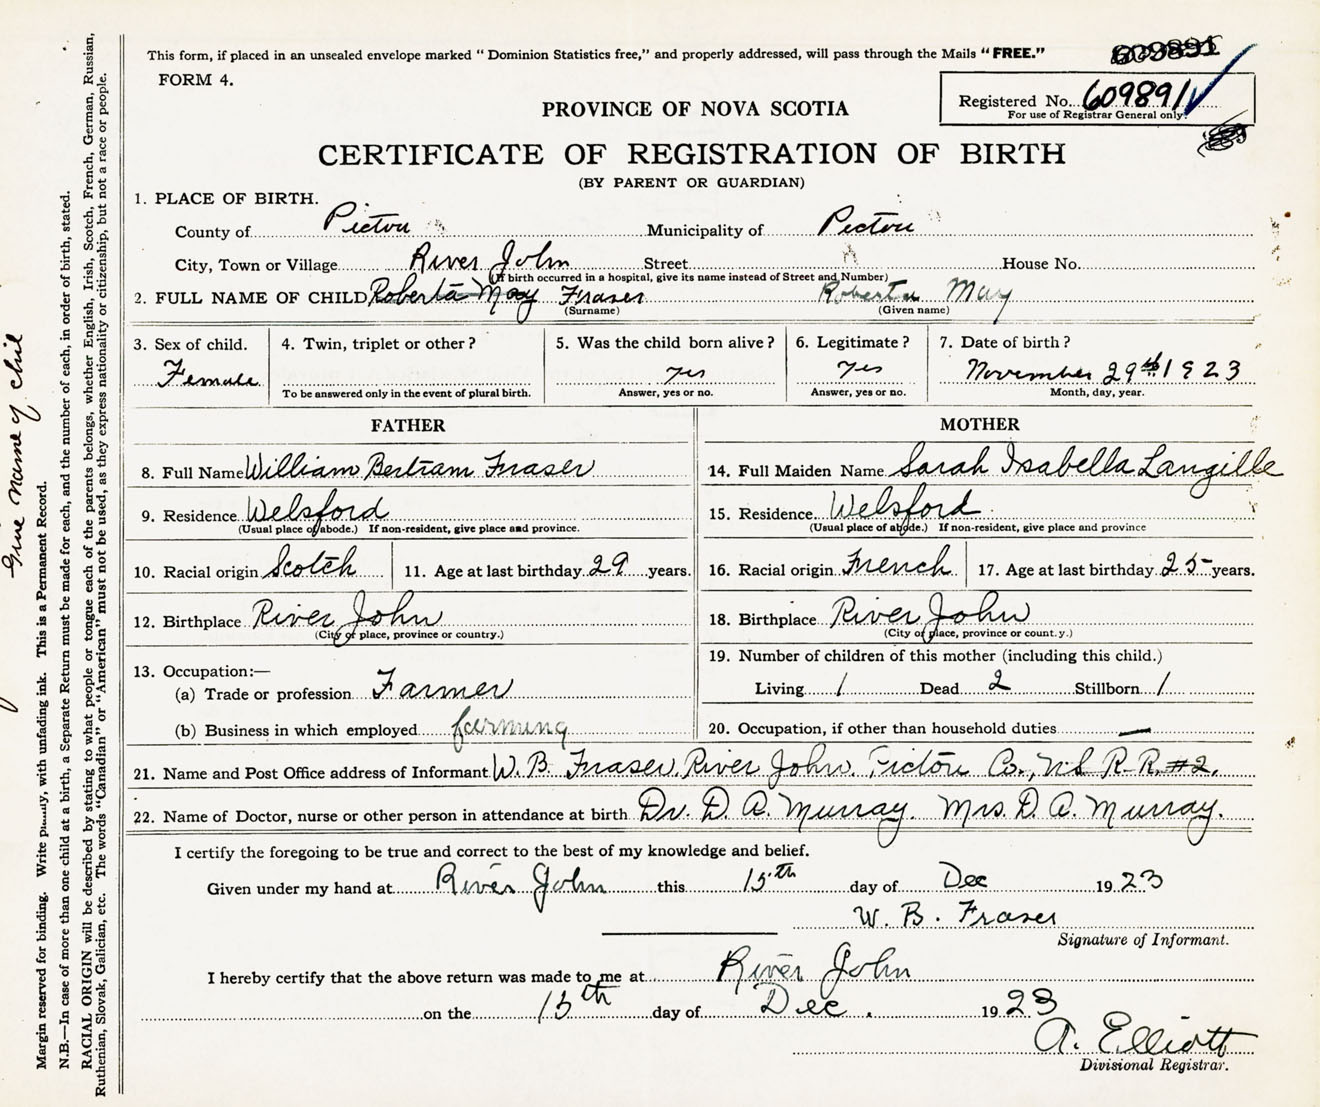 This form, if placed in an unsealed envelope marked " Dominion Statistics free," and properly addressed, will pass through the Mails "FREE."
609891
FORM 4.
Registered No. 609891
For use of Registrar General only.
PROVINCE OF NOVA SCOTIA
CERTIFICATE OF REGISTRATION OF BIRTH
(BY PARENT OR GUARDIAN)
1. PLACE OF BIRTH.
County of Pictou Municipality of Pictou
City, Town or Village River John Street House No.
(If birth occurred in a hospital, give its name instead of Street and Number)
2. FULL NAME OF CHILD Roberta May Fraser Roberta May
(Surname) (Given name)
3. Sex of child. 4. Twin, triplet or other? 5. Was the child born alive? 6. Legitimate? 7. Date of birth?
Female yes yes November 29th 1923
To be answered only in the event of plural birth. Answer, yes or no. Answer, yes or no. Month, day, year.
FATHER
8. Full Name William Bertram Fraser
9. Residence Welsford
(Usual place of abode.) If non-resident, give place and province.
10. Racial origin Scotch 11. Age at last birthday 29 years.
12. Birthplace River John
(City or place, province or country.)
13. Occupation:—
(a) Trade or profession Farmer
(b) Business in which employed farming
MOTHER
14. Full Maiden Name Sarah Isabella Langille
15. Residence Welsford
(Usual place of abode.) If non-resident, give place and province
16. Racial origin French 17. Age at last birthday 25 years.
18. Birthplace River John
(City or place, province or count.y.)
19. Number of children of this mother (including this child.)
Living 1 Dead 2 Stillborn 1
20. Occupation, if other than household duties —
21. Name and Post Office address of Informant W. B. Fraser, River John. Pictou Co., N.S R.R. #2.
22. Name of Doctor, nurse or other person in attendance at birth Dr. D. A. Murray. Mrs. D. A. Murray.
I certify the foregoing to be true and correct to the best of my knowledge and belief.
Given under my hand at River John this 15th day of Dec 1923
W. B. Fraser
Signature of Informant.
I hereby certify that the above return was made to me at River John
on the 15th day of Dec. 1923
A. Elliott
Divisional Registrar.
Give name of chil
Margin reserved for binding. Write with unfading ink. This is a Permanent Record.
N.B.—In case of more than one child at a birth, a Separate Return must be made for each, and the number of each, in order of birth, stated.
RACIAL ORIGIN will be described by stating to what people or tongue each of the parents belongs, whether English, Irish, Scotch, French, German, Russian,
Ruthenian, Slovak, Galician, etc. The words "Canadian" or "American" must not be used, as they express nationality or citizenship, but not a race or people.